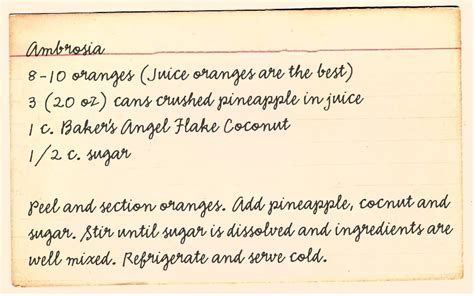 Ambrosia
8-10 oranges (Juice oranges are the best)
3 (20 oz) cans crushed pineapple in juice
1 c. Baker's Angel Flake Coconut
1/2 c. sugar
Peel and section oranges. Add pineapple, cocnut and
sugar. Stir until sugar is dissolved and ingredients are
well mixed. Refrigerate and serve cold.